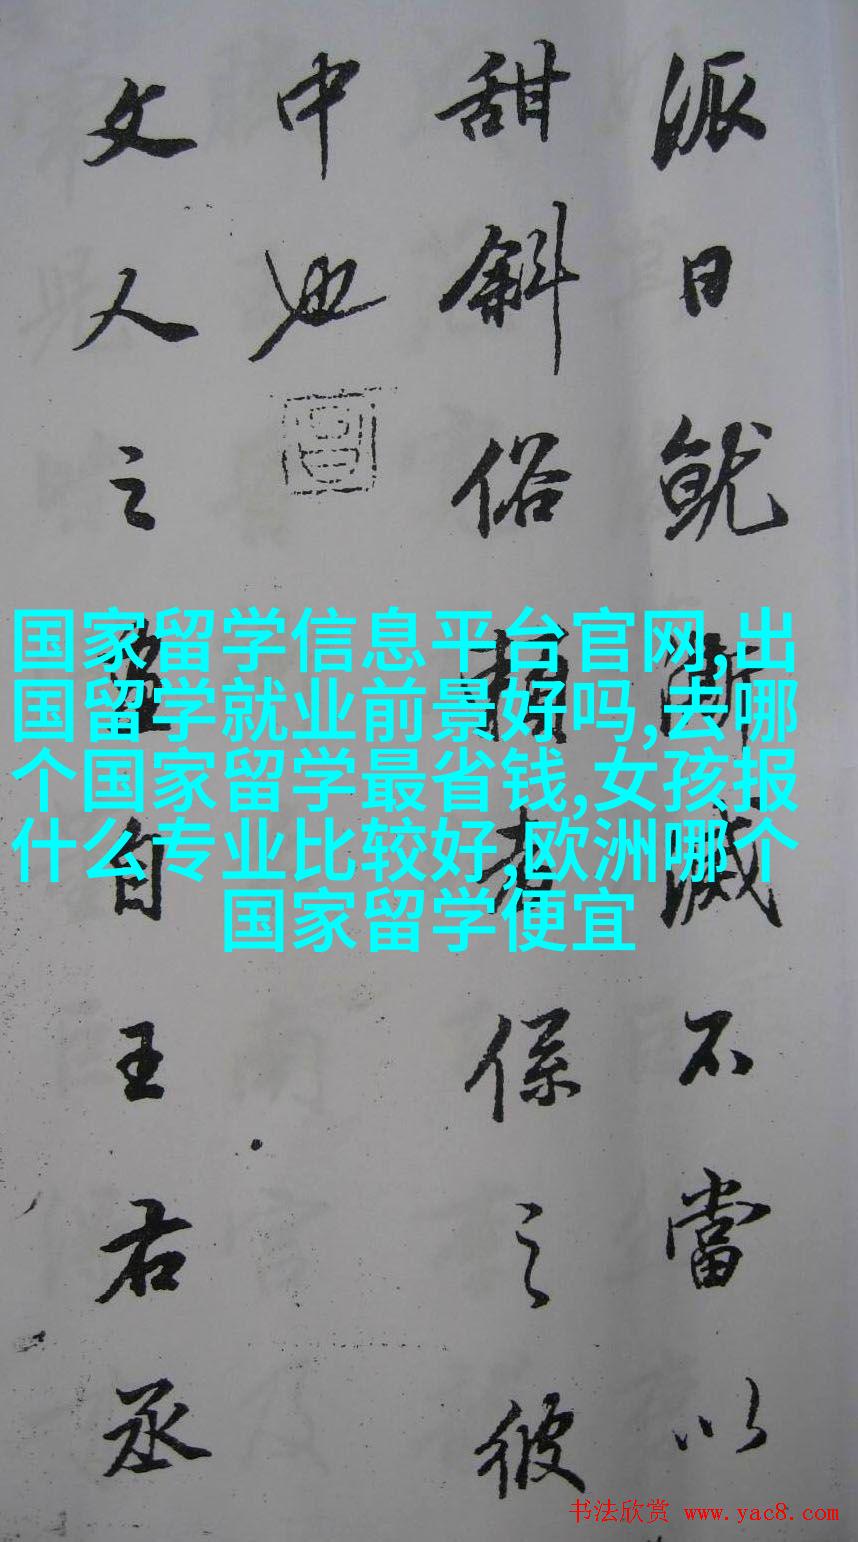 派日就澌滅不當以
甜斜俗賴者係之彼
中也
文人之畫自王右丞
国家留学信息平台官网,出
国留学就业前景好吗,去哪
个国家留学最省钱,女孩报
什么专业比较好,欧洲哪个
国家留学便宜
书法欣赏 www.yac8.com